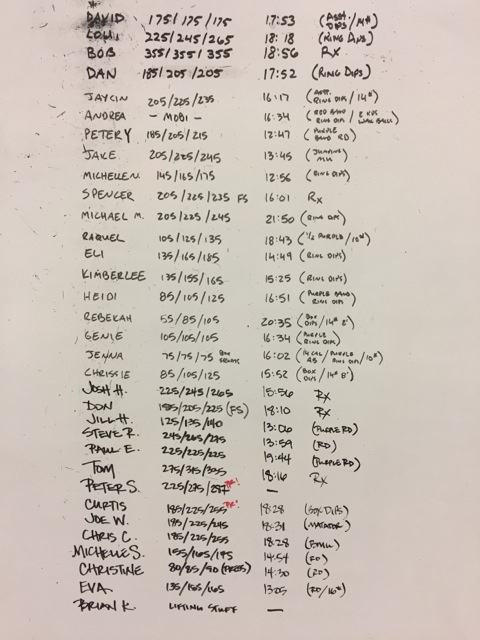 DAVID 175/175/175 17:53 (ASST. DIPS/14#)
LOUI 225/245/265 18:18 (RING DIPS)
BOB 355/355/355 18:56 RX
DAN 185/205/205 17:52 (RING DIPS)
JAYCIN 205/225/235 16:17 (ASST. RING DIPS/14#)
ANDREA - MOBI - 16:34 (RED BAND RING DIP / WALL BALLS)
PETER Y 185/205/215 12:47 (PURPLE BAND RD)
JAKE 205/225/245 13:45 (JUMPING MU)
MICHELLE N. 145/165/175 12:56 (RING DIPS)
SPENCER 205/225/235 FS 16:01 RX
MICHAEL M. 205/225/245 21:50 (RING DIPS)
RAQUEL 105/125/135 18:43 (1/2 PURPLE/10#)
ELI 135/165/185 14:49 (RING DIPS)
KIMBERLEE 135/155/165 15:25 (RING DIPS)
HEIDI 85/105/125 16:51 (PURPLE BAND RING DIPS)
REBEKAH 55/85/105 20:35 (BOX DIPS/14# 8')
GENIE 105/105/105 16:34 (PURPLE RING DIPS)
JENNA 75/75/75 BOX SQUATS 16:02 (14 CAL/PURPLE AB RING DIPS/10#)
CHRISSIE 85/105/125 15:52 (BOX DIPS/14# 8')
JOSH H. 225/245/265 15:56 RX
DON 185/205/225 (FS) 18:10 RX
JILL H. 125/135/140 13:06 (PURPLE RD)
STEVE R. 245/265/275 13:59 (RD)
PAUL E. 225/225/225 19:44 (PURPLE RD)
TOM 275/315/335 18:16 RX
PETER S. 225/275/297 PR! —
CURTIS 185/225/255 PR! 18:28 (BOX DIPS)
JOE W. 185/225/245 18:31 (MATADOR)
CHRIS C. 185/225/255 18:28
MICHELLE S. 155/165/195 14:54 (RD)
CHRISTINE 80/85/90 (PRESS) 14:30 (RD)
EVA 135/155/165 13:05 (RD/16#)
BRIAN K. LIFTING STUFF —